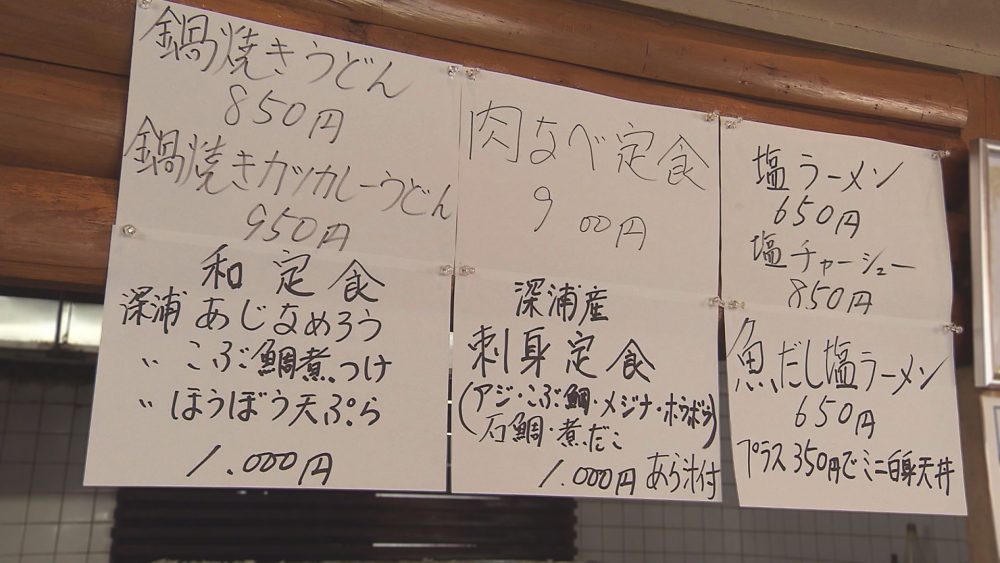 鍋焼きうどん
850円
鍋焼きカツカレーうどん
950円
和定食
深浦 あじなめろう
〃 こぶ鯛煮つけ
〃 ほうぼう天ぷら
1.000円
肉なべ定食
900円
深浦産
刺身定食
(アジ・こぶ鯛・メジナ・ホウボウ)
石鯛・煮だこ
1.000円 あら汁付
塩ラーメン
650円
塩チャーシュー
850円
魚だし塩ラーメン
650円
プラス350円でミニ白身天丼